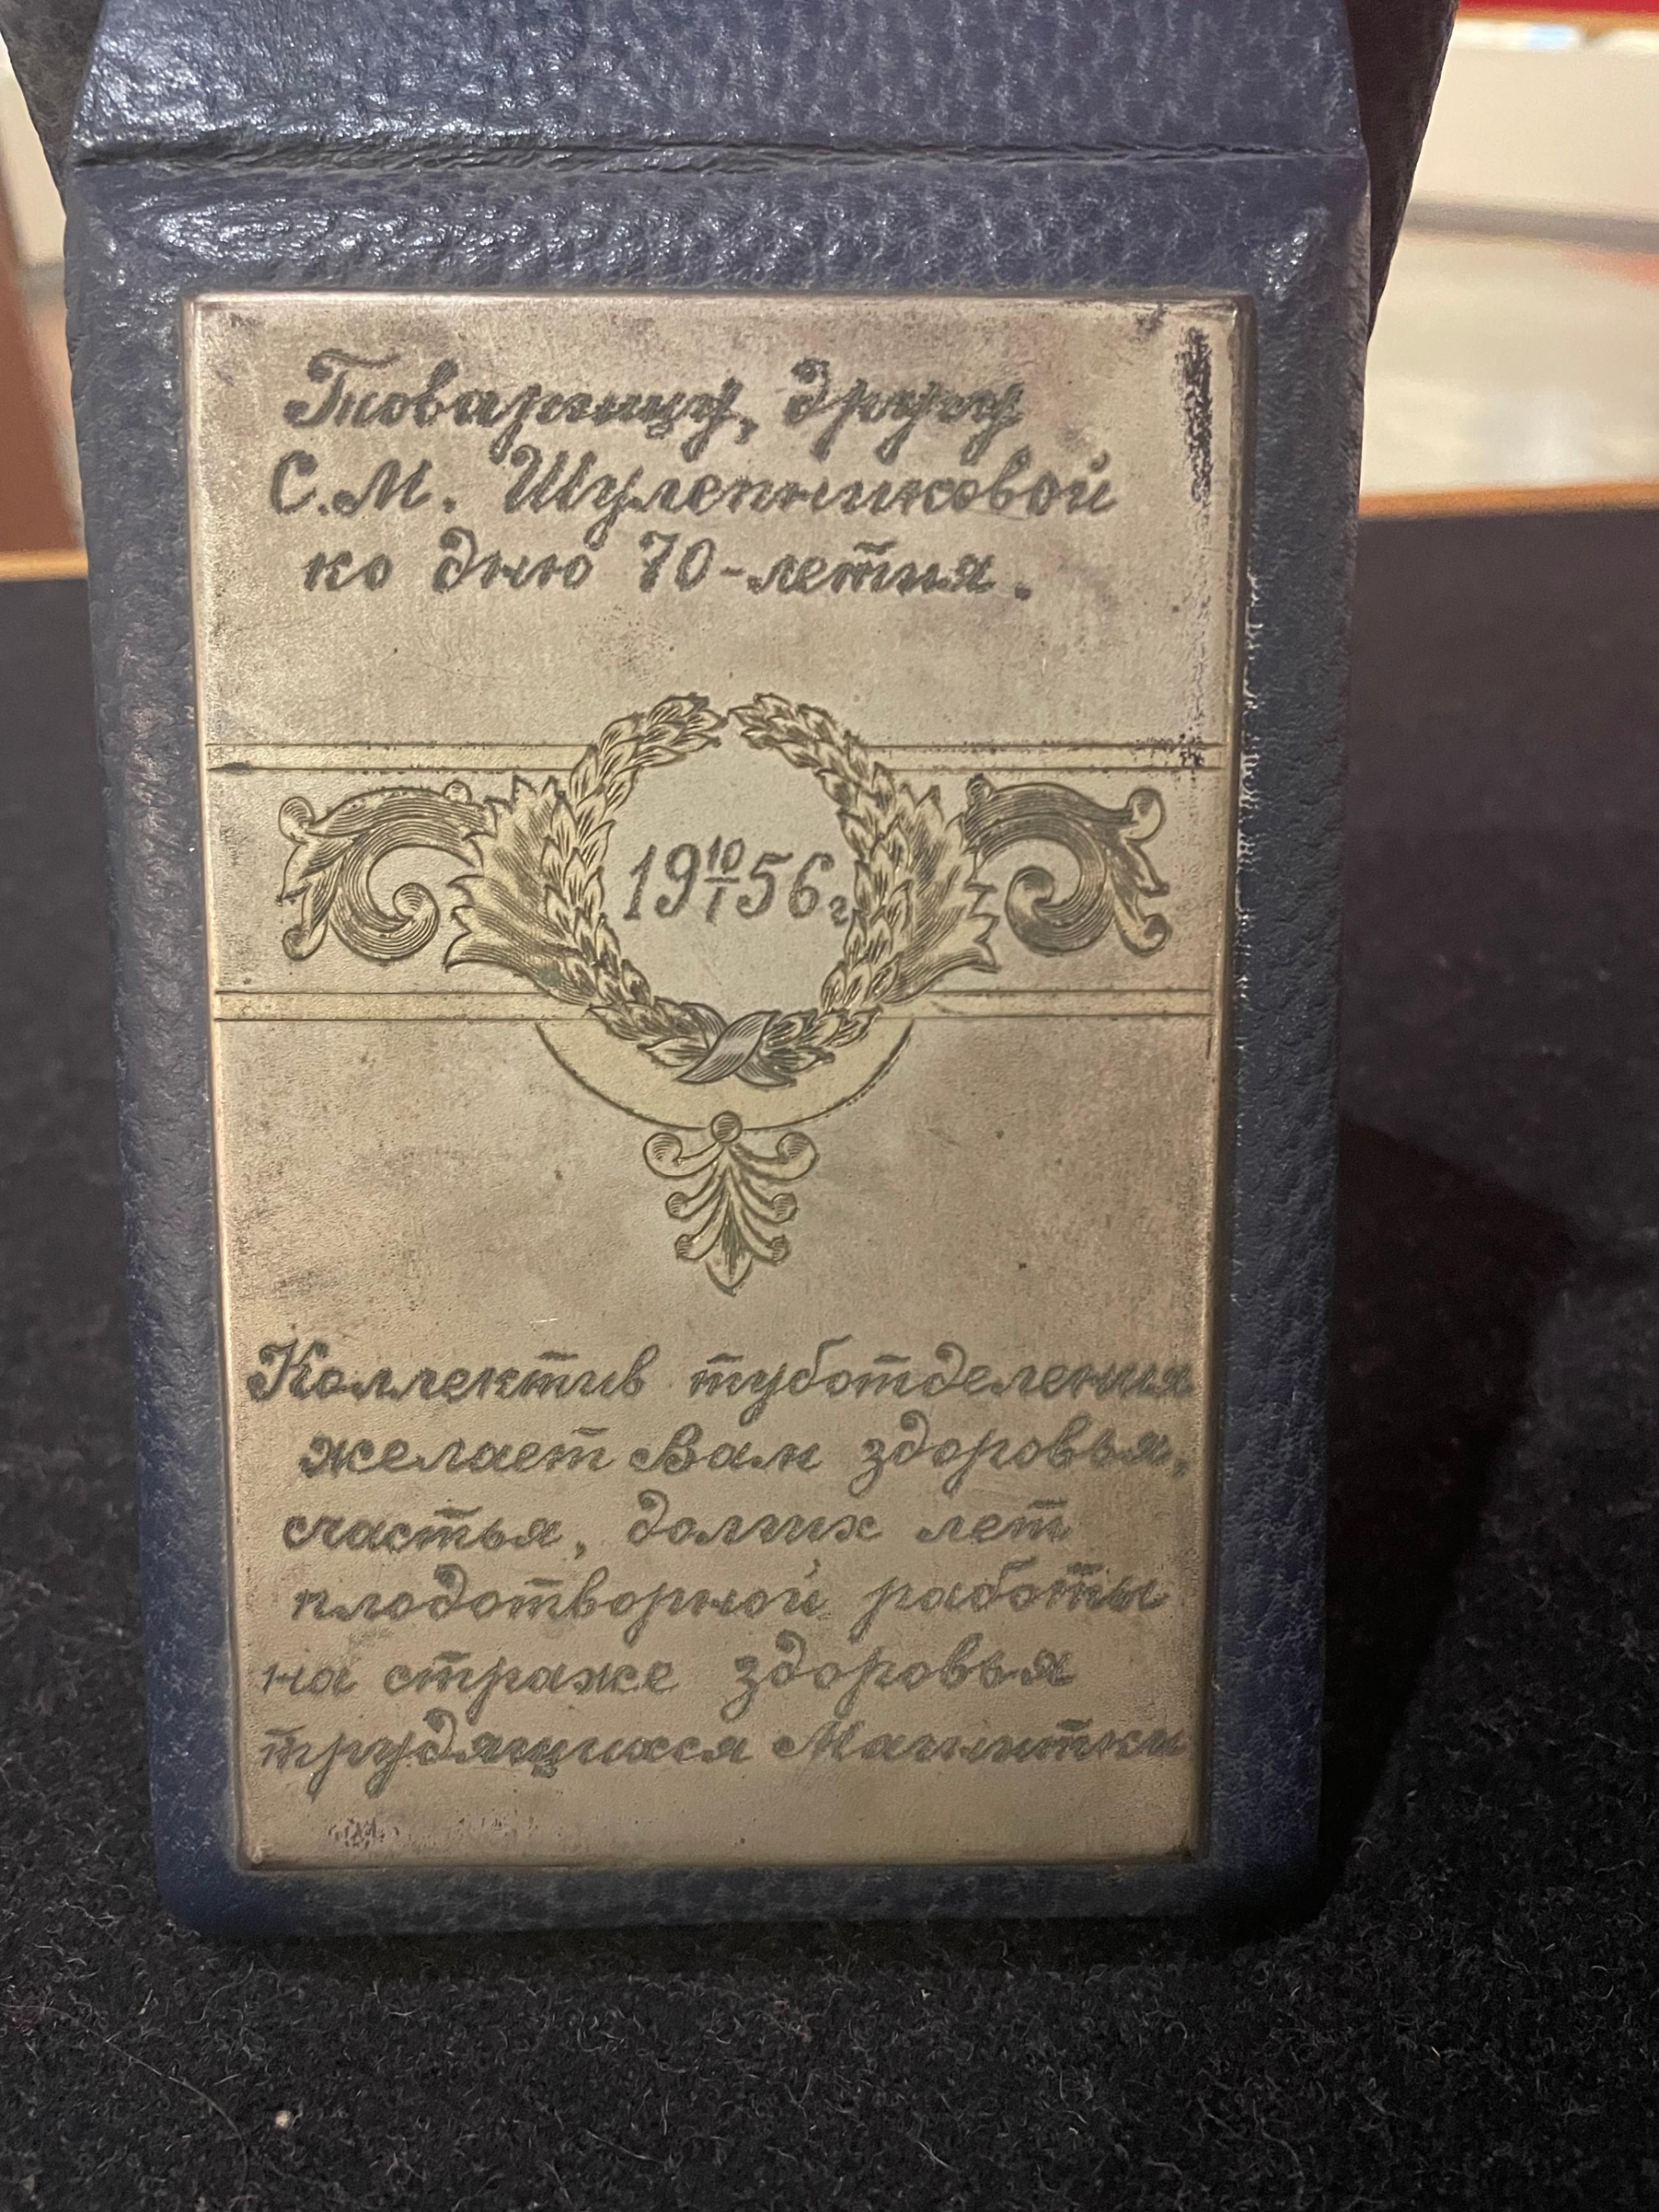 Товарищу, другу
С.М. Шулепниковой
ко дню 70-летия.
19 10/I 56 г
Коллектив туботделения
желает Вам здоровья,
счастья, долгих лет
плодотворной работы
на страже здоровья
трудящихся Магнитки